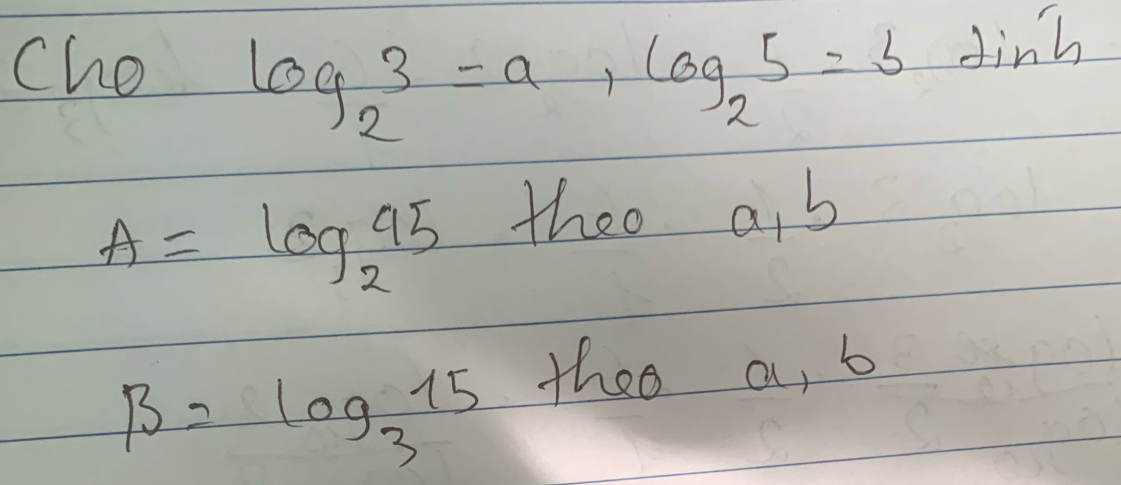 Cho log₂3 = a, log₂5 = b tính
A = log₂45 theo a, b
B = log₃15 theo a, b